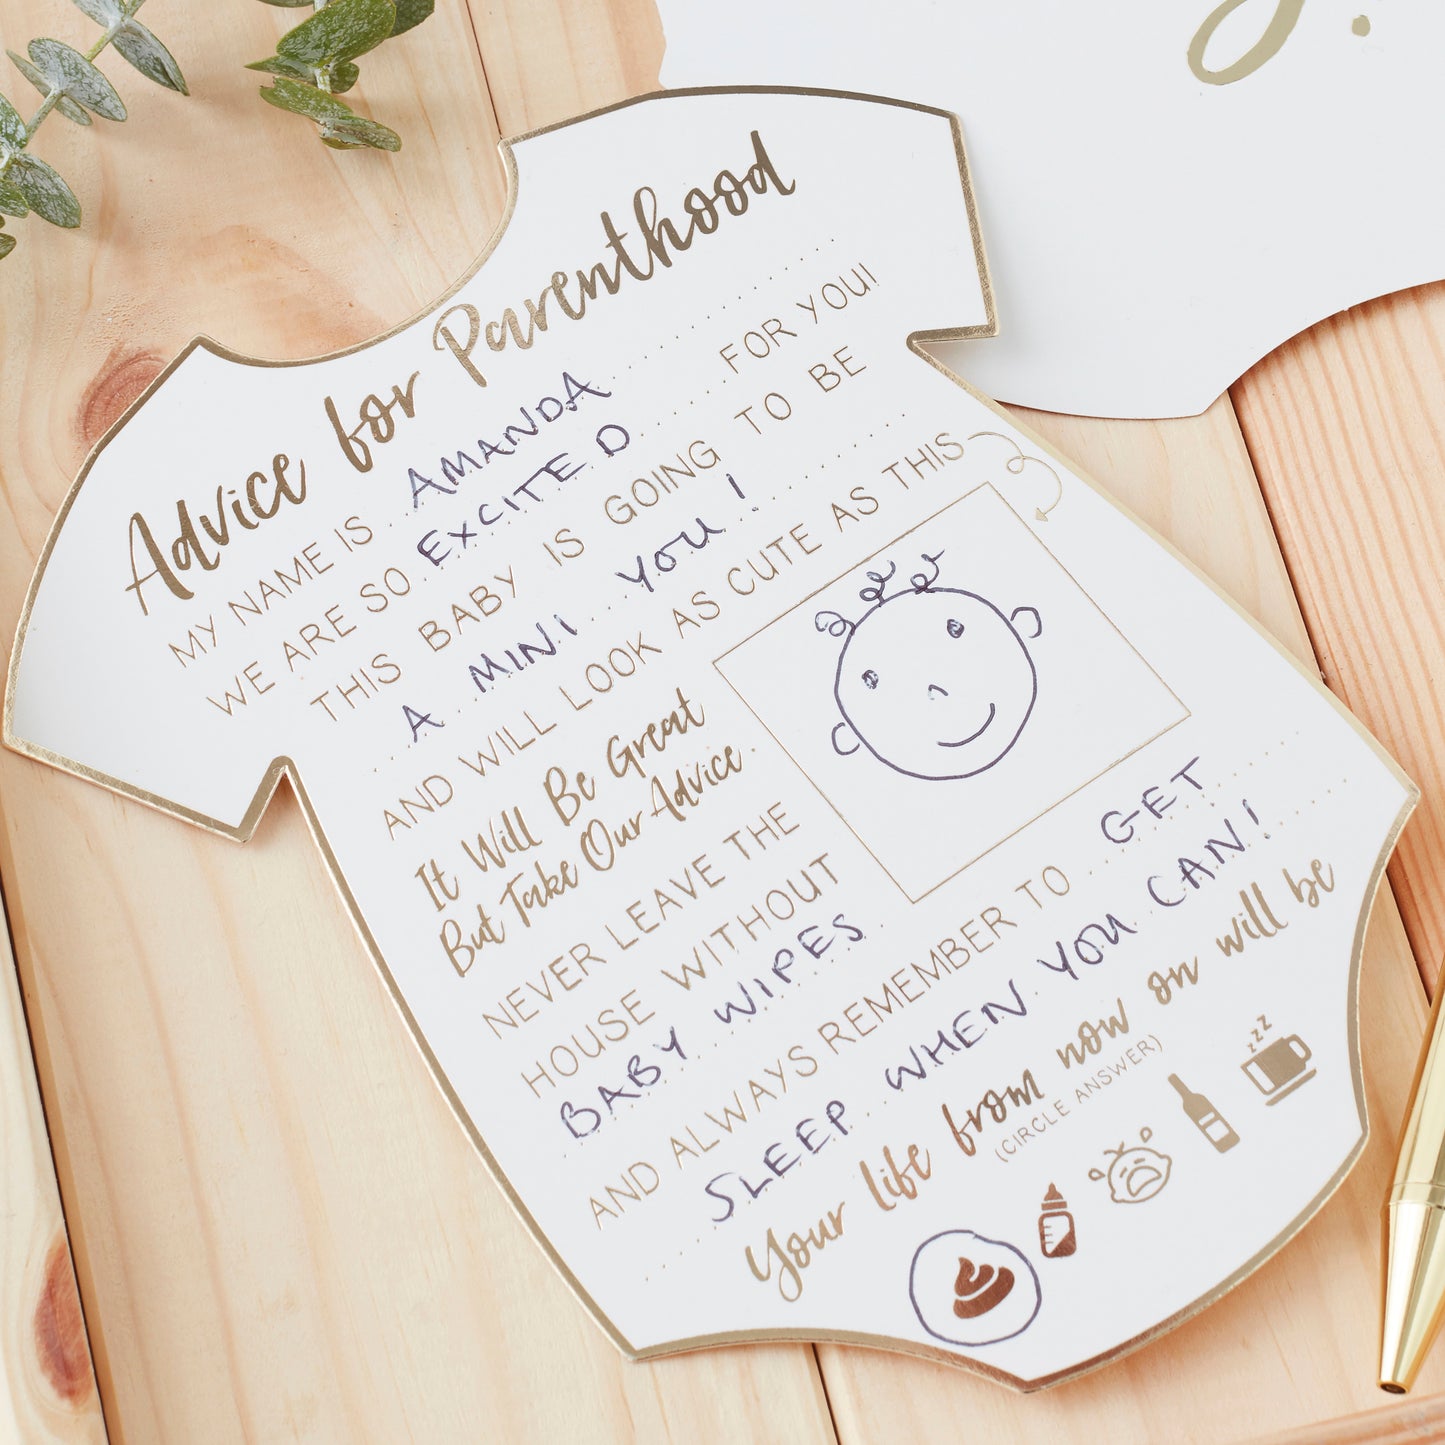 Advice for Parenthood
MY NAME IS AMANDA
WE ARE SO EXCITED FOR YOU!
THIS BABY IS GOING TO BE
A MINI YOU!
AND WILL LOOK AS CUTE AS THIS
It Will Be Great
But Take Our Advice
NEVER LEAVE THE
HOUSE WITHOUT
BABY WIPES
AND ALWAYS REMEMBER TO GET
SLEEP WHEN YOU CAN!
Your life from now on will be
(CIRCLE ANSWER)
zzz